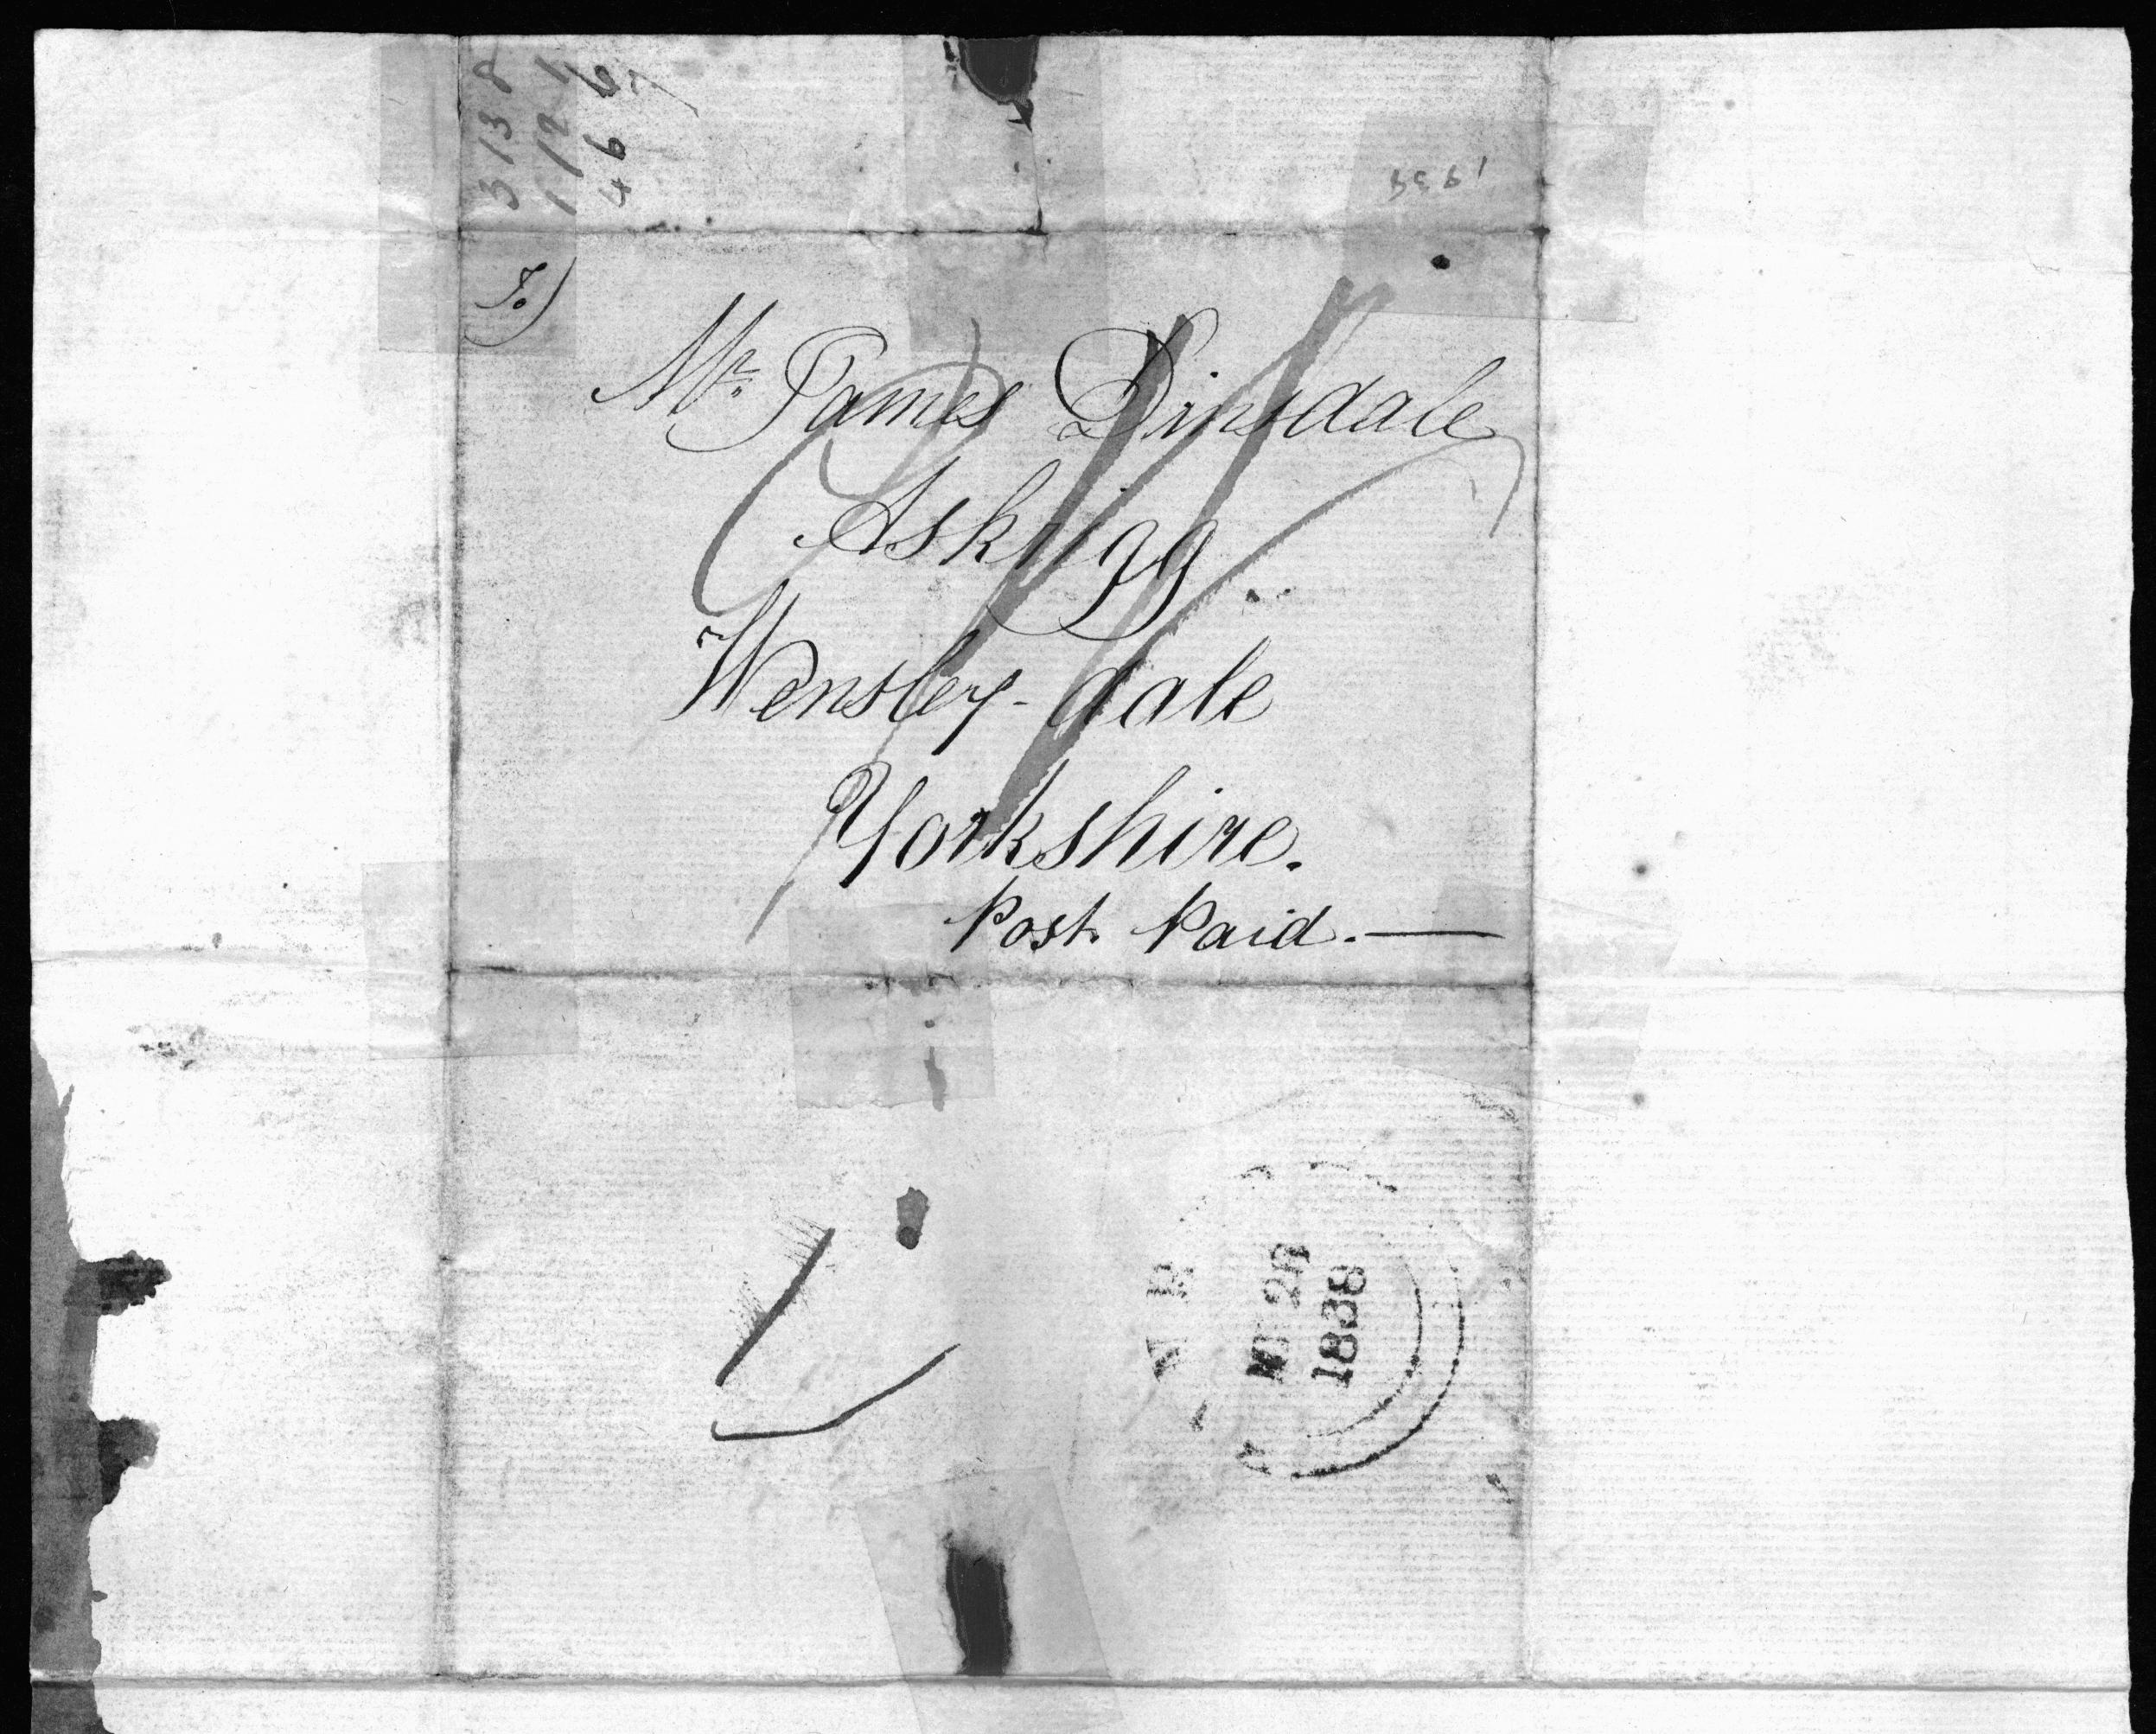 3 13 8
1 12 1
4 6 6
To)
Mr. James Dinsdale
Askrigg..
Wensley-dale
Yorkshire.
Post Paid.—
1838